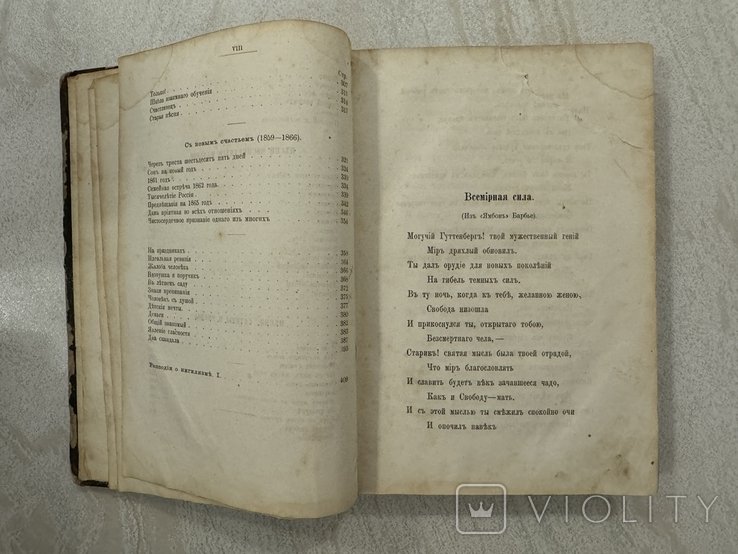 VIII
Стр.
Только!
Школа взаимнаго обученія
Счастливецъ
Старая пѣсня
Съ новымъ счастьемъ (1859—1866).
Черезъ триста шестьдесятъ пять дней 321
Сонъ на новый годъ
1861 годъ
Семейная встрѣча 1862 года.
Тысячелѣтіе Россіи
Предвѣщанія на 1865 годъ
Дама пріятная во всѣхъ отношеніяхъ
Чистосердечное признаніе одного изъ многихъ 354
На праздникахъ
Идеальная ревизія
Жалоба человѣка
Въ лѣтнемъ саду
Человѣкъ съ душой
Дѣтскія мечты.
Деньги
Общій знакомый
Явленіе гласности
Два скандала
Рапсодія о нигилизмѣ. I.
Всемірная сила.
(Изъ «Ямбовъ» Барбье).
Могучій Гуттенбергъ! твой мужественный геній
Міръ дряхлый обновилъ.
Ты далъ орудіе для новыхъ поколѣній
На гибель темныхъ силъ.
Въ ту ночь, когда къ тебѣ, желанною женою,
Свобода низошла
И прикоснулся ты, открытаго тобою,
Безсмертнаго чела,—
Старикъ! святая мысль была твоей отрадой,
Что міръ благословлять
И славить будетъ вѣкъ зачавшееся чадо,
Какъ и Свободу—мать.
И съ этой мыслью ты смѣжилъ спокойно очи
И опочилъ навѣкъ
VIOLITY